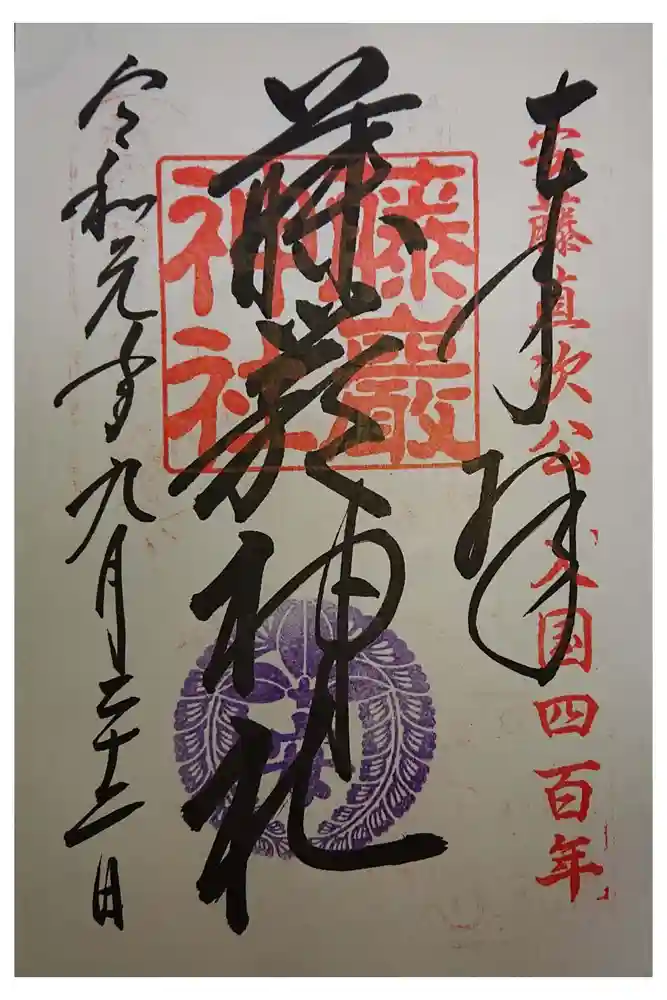 奉拝
安藤直次公入国四百年
藤巖神社
藤巖神社
令和元年九月二十二日